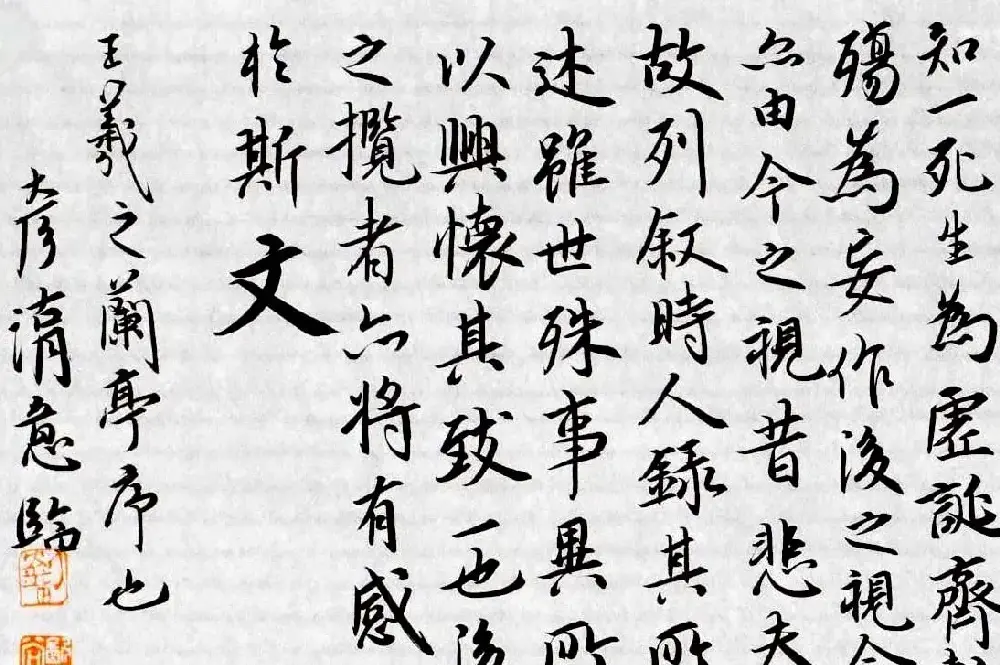 知一死生為虛誕齊
殤為妄作後之視
亦由今之視昔悲夫
故列叙時人録其所
述雖世殊事異所
以興懷其致一也後
之攬者亦将有感
於斯文
王羲之蘭亭序也
彦涓意臨